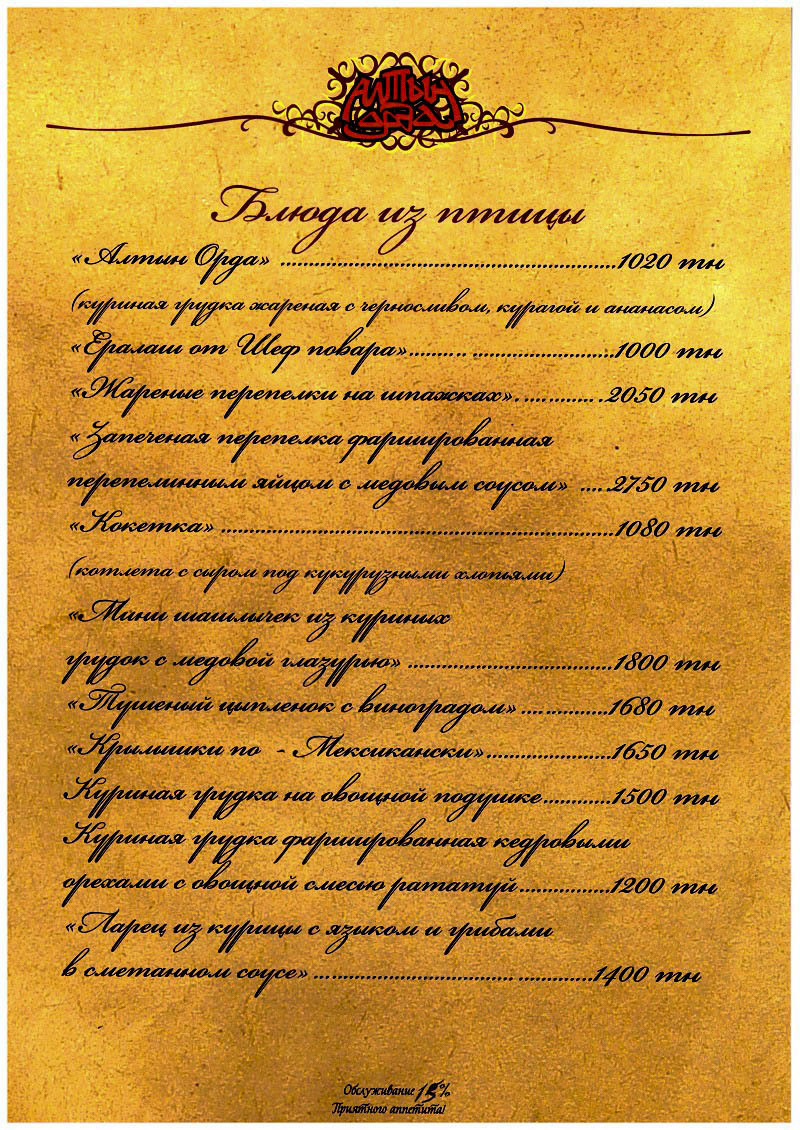 Алтын
Орда
Блюда из птицы
«Алтын Орда» ......................................................1020 тн
(куриная грудка жареная с черносливом, курагой и ананасом)
«Ералаш от Шеф повара»......... .......................1000 тн
«Жареные перепелки на шпажках». ........... .2050 тн
« Запеченая перепелка фаршированная
перепелинным яйцом с медовым соусом» .....2750 тн
«Кокетка» ...............................................................1080 тн
(котлета с сыром под кукурузными хлопьями)
«Мини шашлычек из куриных
грудок с медовой глазурью» .................................1800 тн
«Тушеный цыпленок с виноградом» ..............1680 тн
«Крылышки по - Мексикански»....................1650 тн
Куриная грудка на овощной подушке...........1500 тн
Куриная грудка фаршированная кедровыми
орехами с овощной смесью рататуй...............1200 тн
«Ларец из курицы с языком и грибами
в сметанном соусе» ................................ .............1400 тн
Обслуживание 15%
Приятного аппетита!